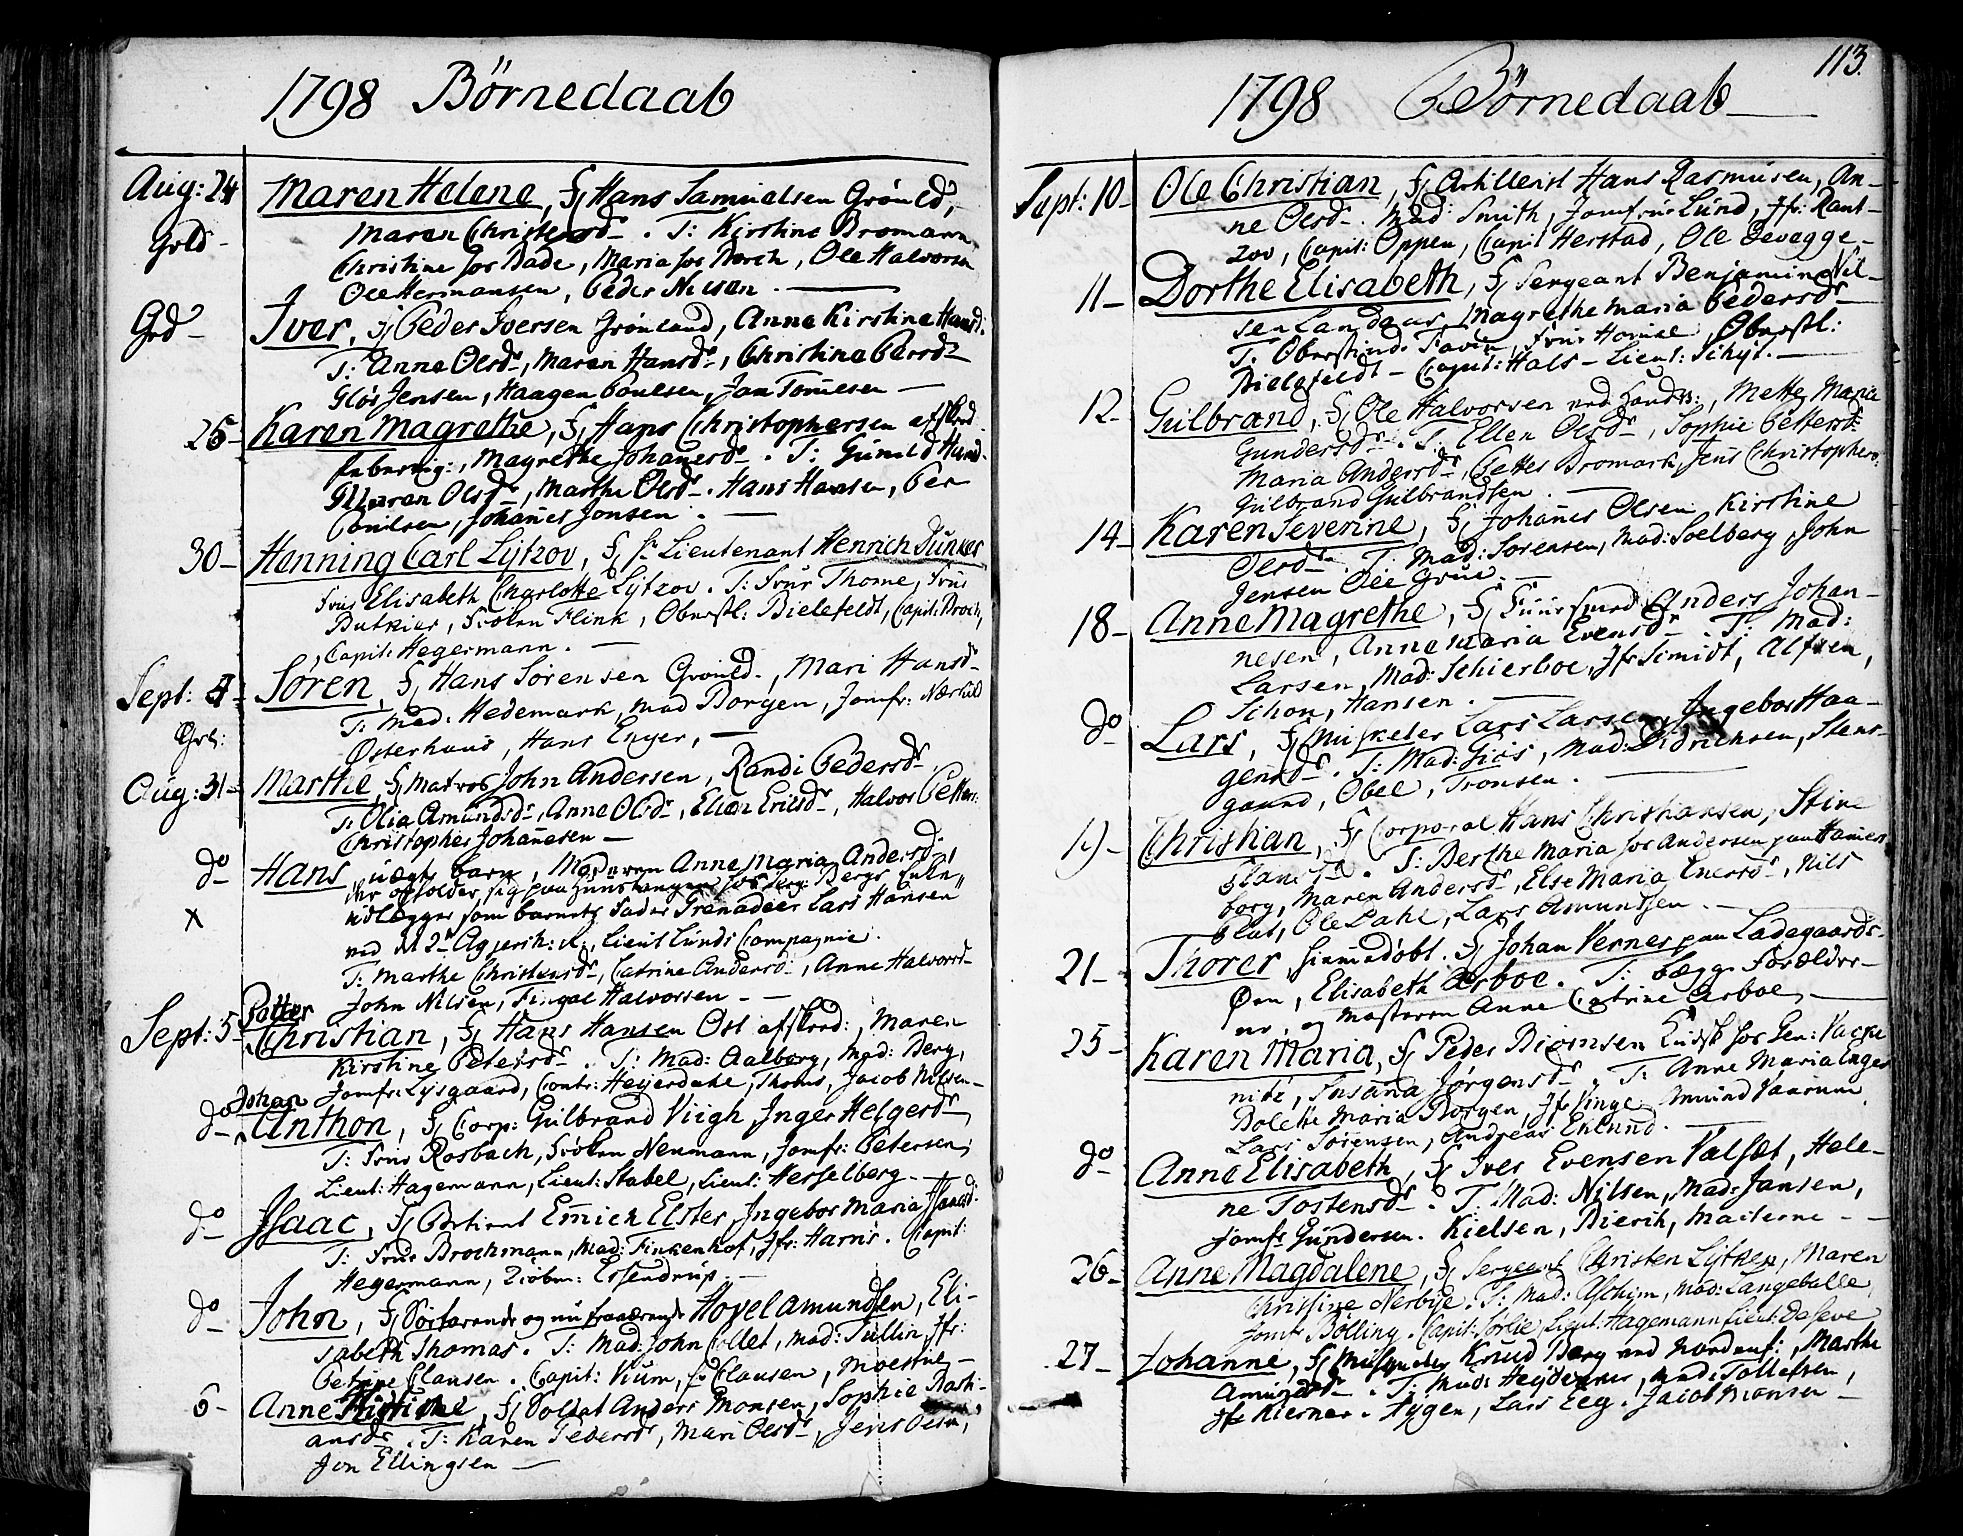 1798 Börnedaab
Aug: 24 Maren Helene, F/ Hans Samuelsen Grönld,
Grld - Maren Christensdr. T: Kirstine Bromann
Christine hos Bade, Maria hos Borch, Ole Halvorsen
Ole Hermansen, Peder Nilsen.
Grd - Iver, F/ Peder Iversen Grönland, Anne Kirstine Hansd:
T: Anne Olsdr, Maren Hansdr, Christine Persdr
Glós Jensen, Haagen Poulsen, Jan Tomesen
25 - Karen Magrethe, F/ Hans Christophersen afskd
Magrethe Johanesdr. T: Gunild Hansd.
Maren Olsdr, Marthe Olsdr. Hans Hansen, Per
Poulsen, Johanes Jonsen.
30 - Henning Carl Lÿtzov, F/ Pr Lieutenant Henrich Dunker
Frue Elisabeth Charlotte Lÿtzov. T: Frue Thome, Frue
Butzier, Fröken Flink, Oberstl: Bielefeldt, Capit: Broch,
Capit: Hegermann.
Sept: 4 - Sören, F/ Hans Sörensen Grönld., Mari Hansdr
Grl: T: Mad. Hedemark, Mad Borgen, Jomfr: Nærkild
Österhaus, Hans Enger,
Aug: 31 - Marthe, F/ Matros John Andersen, Randi Pedersdr
T: Olia Amundsdr, Anne Olsdr, Ellen Erilsdr, Halvor Petters:
Christopher Johanesen
do Hans uægte barn, Moderen Anne Maria Andersd.
opholder sig paa hos Berg
x udlægger som barnets Fader Grenadeer Lars Hansen
ved 2de Aggersh: R:, Lieut Lunds Compagnie.
T: Marthe Christensdr, Catrine Andersd:, Anne Halvorsdr
John Nilsen, Fingal Halvorsen -
Petter
Sept: 5 - Christian, F/ Hans Hansen Ost afskd:, Maren
Kirstine Petersdr. T: Mad: Aalborg, Mad: Berg,
Jomfr: Lysgaard, Contr: Heyerdahl, Thoms, Jacob Nilsen
Johan
do Anthon, F/ Corp: Gulbrand Viigh, Inger Helgersdr
T: Frue Rosbach, Fröken Neumann, Jomfr: Petersen,
Lieut: Hagemann, Lieut: Stabel, Lieut: Hesselberg
do Isaac, F/ Emich Elster, Ingebor Maria Isaacsd.
T: Frue Brochmann, Mad: Finkenhof, Jfr: Harris. Capit:
Hegermann, Kiöbm: Essendrup -
do John, F/ og nu fraværende Hovel Amundsen, Eli-
sabeth Thomas. T: Mad: John Collet, Mad: Tullin, Jfr:
Petrine Clausen. Capit: Vium, Clausen, Moestue
6 - Anne Kirstine, F/ Soldat Anders Monsen, Sophie Basti-
ansdr. T: Karen Pedersdr, Mari Olsdr, Jens Olsen,
Jon Ellingsen
113.
1798 Börnedaab
Sept: 10 - Ole Christian, F/ Artillerist Hans Rasmusen, An-
ne Olsd. Mad: Smith, Jomfrue Lund, Jfr: Rant-
zov, Capit: Oppen, Capit Herstad, Ole Bevegge
11 - Dorthe Elisabeth, F/ Sergeant Benjamin Nil-
sen Landaas, Magrethe Maria Pedersdr
T: Frue Homble, Oberstl:
Bielefeldt - Capit: Hals - Lieut: Schÿt.
12 - Gulbrand, F/ Ole Halvorsen ved, Mette Maria
Gundersdr. T: Ellen Olsdr, Sophie Pettersd
Maria Andersdr, Petter Bromark, Jens Christophers:
Gulbrand Gulbrandsen.
14 - Karen Severine, F/ Johanes Olsen Kirstine
Olsdr. T: Mad: Sorensen, Mad: Soelberg, John
Jensen Ole Grue.
18 - Anne Magrethe, F/ Anders Johan-
nesen, Anne Maria Evensdr. T: Mad:
Larsen, Mad: Schierboe, Jfr Smidt, Alfsen,
Schou, Hansen.
do Lars, F/ Musketer Lars Larsen, Ingebor Haa-
gensdr. T: Mad: Giös, Mad: Didrichsen, Stens-
gaard, Obel, Tronsen.
19 - Christian, F/ Corporal Hans Christiansen, Stine
T: Berthe Maria hos Andersen paa Hamers
borg, Maren Andersdr, Else Maria Enersdr, Nils
Ole Dahl, Lars Amundsen.
21 - Thorer hiemedöbt. F/ Johan Verner paa Ladegaards-
Öen, Elisabeth Arboe. T: begge Forældre-
ne, og Mosteren Anne Catrine Arboe,
25 - Karen Maria, F/ Peder Biörnsen Kudsk hos Gen: Vacke
nitz, Susana Jörgensdr. T: Anne Maria Enger
Bolette Maria Borgen, Jfr Vinge Amund Vaarum
Lars Sörensen, Andreas Enlund.
do Anne Elisabeth, F/ Iver Evensen Valset, Hele-
ne Tostensdr. T: Mad: Nilsen, Mad: Jansen,
Jomfr Gundersen. Kielsen, Bierik, Maiterne
26 - Anne Magdalene, F/ Sergeant Christen Lÿtzen, Maren
Christine Nerbye. T: Mad: Aschim, Mad: Langeballe
Jomfr Bölling. Capit: Sorlie, Lieut: Hagemann Lieut: De Seve
27 - Johanne, F/ Musqueter Knud Berg ved Nordenf:, Marthe
Amundsdr. T: Mad: Heyderer, Mad: Tollefsen,
Jfr Kierner. Hygen, Lars Eeg. Jacob Monsen